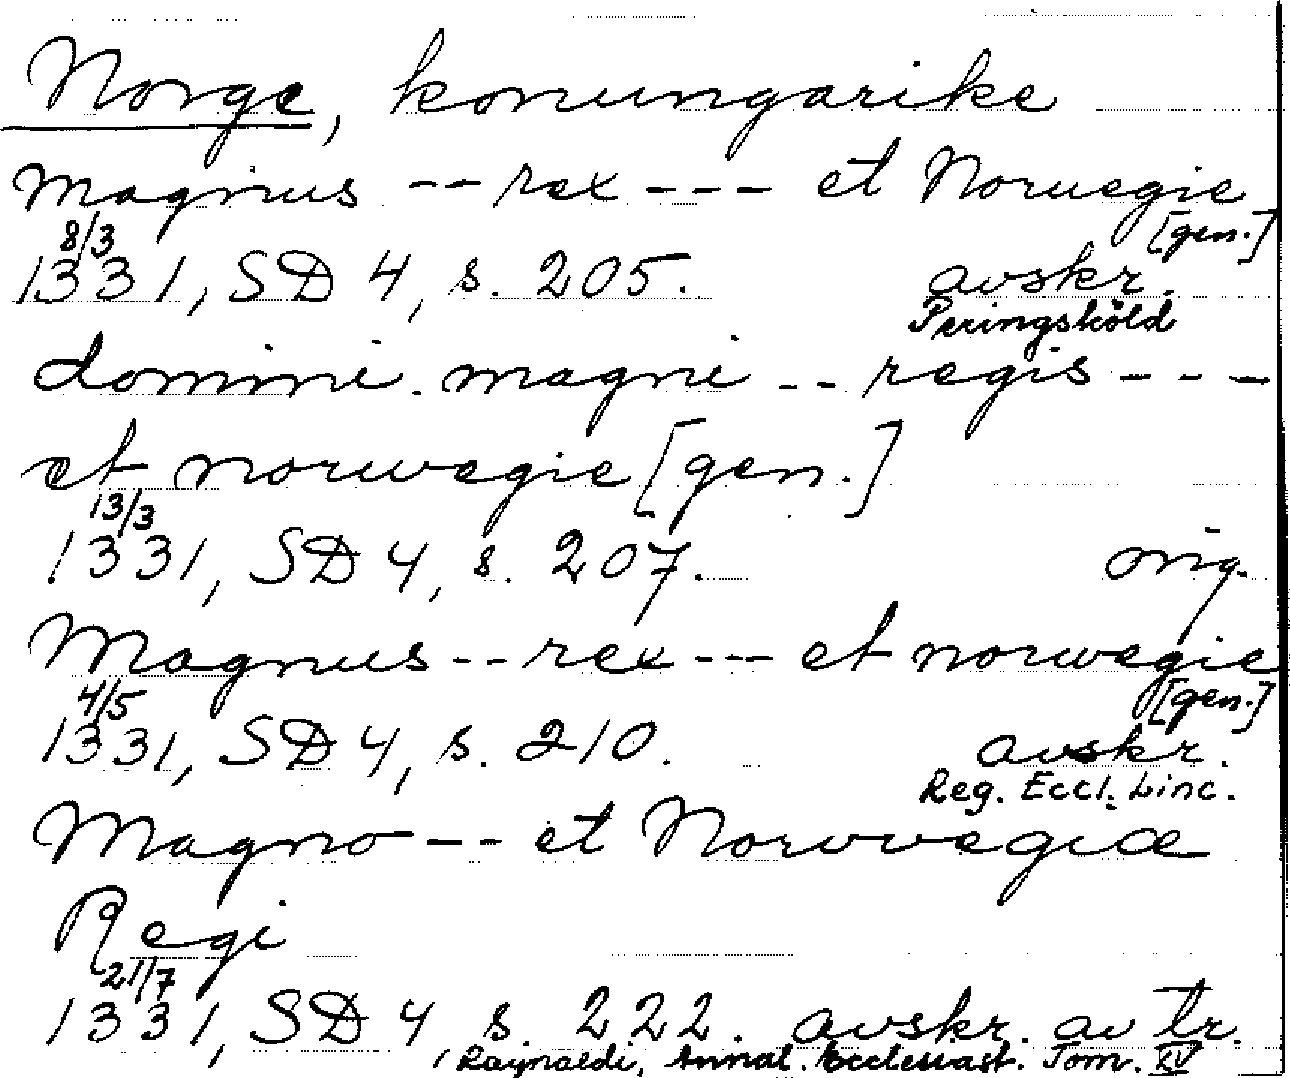 Norge, konungarike
Magnus -- rex --- et Noruegie
[gen.]
8/3
1331, SD 4, s. 205. avskr.
Peringsköld
domini. magni -- regis ---
et norwegie [gen.]
13/3
1331, SD 4, s. 207. orig.
Magnus -- rex --- et norwegie
[gen.]
4/5
1331, SD 4, s. 210. avskr.
Reg. Eccl. Linc.
Magno -- et Norvvegiæ
Regi
21/7
1331, SD 4, s. 222. avskr. av tr.
Raynaldi, Annal. Ecclesiast. Tom. XV